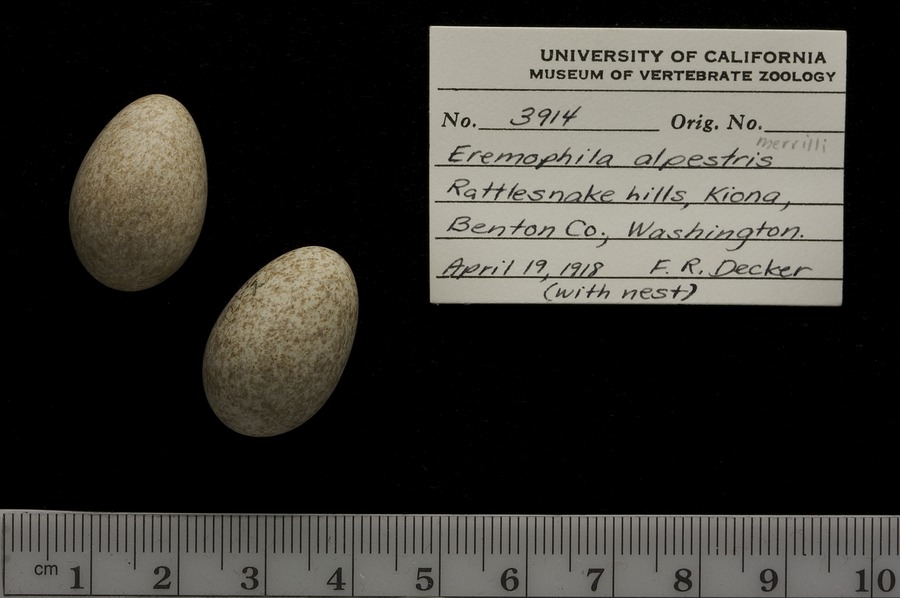 UNIVERSITY OF CALIFORNIA
MUSEUM OF VERTEBRATE ZOOLOGY
No. 3914 Orig. No.
merrilli
Eremophila alpestris
Rattlesnake hills, Kiona,
Benton Co., Washington.
April 19, 1918 F. R. Decker
(with nest)
cm 1 2 3 4 5 6 7 8 9 10